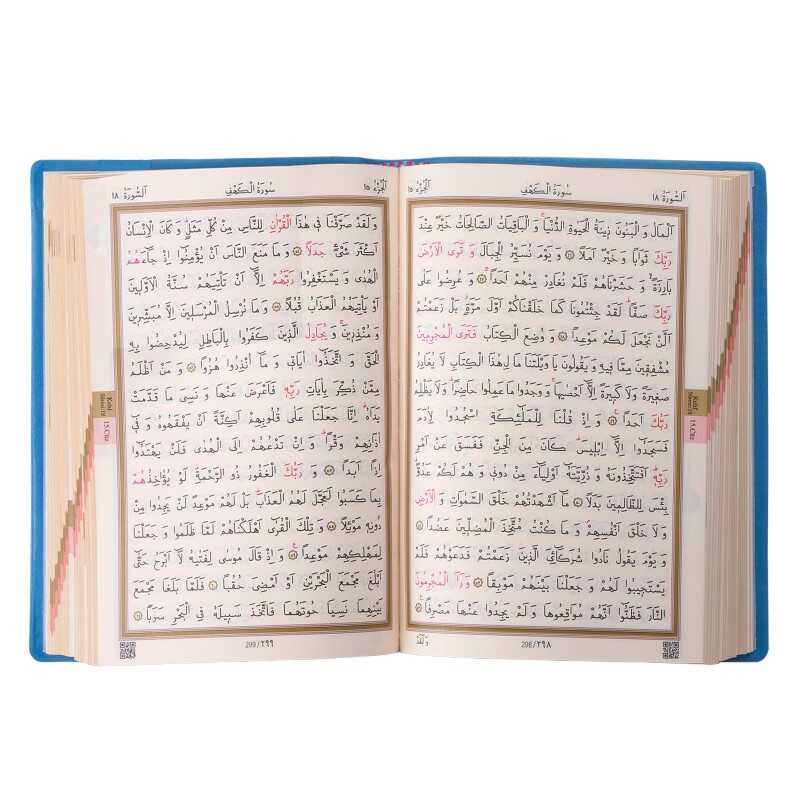 اَلسُّورَةُ ١٨
سُورَةُ الْكَهْفِ
اَلْجُزْءُ ١٥
اَلْمَالُ وَ الْبَنُونَ زِينَةُ الْحَيٰوةِ الدُّنْيَاۚ وَ الْبَاقِيَاتُ الصَّالِحَاتُ خَيْرٌ عِنْدَ
رَبِّكَ ثَوَابًا وَ خَيْرٌ اَمَلًا ﴿٤٦﴾ وَ يَوْمَ نُسَيِّرُ الْجِبَالَ وَ تَرَى الْاَرْضَ
بَارِزَةًۙ وَ حَشَرْنَاهُمْ فَلَمْ نُغَادِرْ مِنْهُمْ اَحَدًاۚ ﴿٤٧﴾ وَ عُرِضُوا عَلٰى
رَبِّكَ صَفًّاۜ لَقَدْ جِئْتُمُونَا كَمَا خَلَقْنَاكُمْ اَوَّلَ مَرَّةٍۘ بَلْ زَعَمْتُمْ
اَلَّنْ نَجْعَلَ لَكُمْ مَوْعِدًا ﴿٤٨﴾ وَ وُضِعَ الْكِتَابُ فَتَرَى الْمُجْرِمِينَ
مُشْفِقِينَ مِمَّا فِيهِ وَ يَقُولُونَ يَا وَيْلَتَنَا مَالِ هٰذَا الْكِتَابِ لَا يُغَادِرُ
صَغِيرَةً وَ لَا كَبِيرَةً اِلَّٓا اَحْصٰيهَاۚ وَ وَجَدُوا مَا عَمِلُوا حَاضِرًاۜ وَ لَا يَظْلِمُ
رَبُّكَ اَحَدًا۟ ﴿٤٩﴾ وَ اِذْ قُلْنَا لِلْمَلٰٓئِكَةِ اسْجُدُوا لِاٰدَمَ
فَسَجَدُٓوا اِلَّٓا اِبْلِيسَۜ كَانَ مِنَ الْجِنِّ فَفَسَقَ عَنْ اَمْرِ
رَبِّهِۜ اَفَتَتَّخِذُونَهُ وَ ذُرِّيَّتَهُٓ اَوْلِيَٓاءَ مِنْ دُونِي وَ هُمْ لَكُمْ عَدُوٌّۜ
بِئْسَ لِلظَّالِمِينَ بَدَلًا ﴿٥٠﴾ مَٓا اَشْهَدْتُهُمْ خَلْقَ السَّمٰوَاتِ وَ الْاَرْضِ
وَ لَا خَلْقَ اَنْفُسِهِمْۖ وَ مَا كُنْتُ مُتَّخِذَ الْمُضِلِّينَ عَضُدًا ﴿٥١﴾
وَ يَوْمَ يَقُولُ نَادُوا شُرَكَٓائِيَ الَّذِينَ زَعَمْتُمْ فَدَعَوْهُمْ فَلَمْ
يَسْتَجِيبُوا لَهُمْ وَ جَعَلْنَا بَيْنَهُمْ مَوْبِقًا ﴿٥٢﴾ وَ رَاَ الْمُجْرِمُونَ
النَّارَ فَظَنُّٓوا اَنَّهُمْ مُوَاقِعُوهَا وَ لَمْ يَجِدُوا عَنْهَا مَصْرِفًا۟ ﴿٥٣﴾
298 / ٢٩٨
وَ لَقَدْ
Kehf
Sûresi:18
15.Cüz
اَلْجُزْءُ ١٥
سُورَةُ الْكَهْفِ
اَلسُّورَةُ ١٨
وَ لَقَدْ صَرَّفْنَا فِي هٰذَا الْقُرْاٰنِ لِلنَّاسِ مِنْ كُلِّ مَثَلٍۜ وَ كَانَ الْاِنْسَانُ
اَكْثَرَ شَيْءٍ جَدَلًا ﴿٥٤﴾ وَ مَا مَنَعَ النَّاسَ اَنْ يُؤْمِنُٓوا اِذْ جَٓاءَهُمُ
الْهُدٰى وَ يَسْتَغْفِرُوا رَبَّهُمْ اِلَّٓا اَنْ تَأْتِيَهُمْ سُنَّةُ الْاَوَّلِينَ
اَوْ يَأْتِيَهُمُ الْعَذَابُ قُبُلًا ﴿٥٥﴾ وَ مَا نُرْسِلُ الْمُرْسَلِينَ اِلَّا مُبَشِّرِينَ
وَ مُنْذِرِينَۚ وَ يُجَادِلُ الَّذِينَ كَفَرُوا بِالْبَاطِلِ لِيُدْحِضُوا بِهِ
الْحَقَّ وَ اتَّخَذُٓوا اٰيَاتِي وَ مَٓا اُنْذِرُوا هُزُوًا ﴿٥٦﴾ وَ مَنْ اَظْلَمُ
مِمَّنْ ذُكِّرَ بِاٰيَاتِ رَبِّهِ فَاَعْرَضَ عَنْهَا وَ نَسِيَ مَا قَدَّمَتْ
يَدَاهُۜ اِنَّا جَعَلْنَا عَلٰى قُلُوبِهِمْ اَكِنَّةً اَنْ يَفْقَهُوهُ وَ فِٓي
اٰذَانِهِمْ وَقْرًاۜ وَ اِنْ تَدْعُهُمْ اِلَى الْهُدٰى فَلَنْ يَهْتَدُٓوا
اِذًا اَبَدًا ﴿٥٧﴾ وَ رَبُّكَ الْغَفُورُ ذُو الرَّحْمَةِۜ لَوْ يُؤَاخِذُهُمْ
بِمَا كَسَبُوا لَعَجَّلَ لَهُمُ الْعَذَابَۜ بَلْ لَهُمْ مَوْعِدٌ لَنْ يَجِدُوا مِنْ
دُونِهِ مَوْئِلًا ﴿٥٨﴾ وَ تِلْكَ الْقُرٰٓى اَهْلَكْنَاهُمْ لَمَّا ظَلَمُوا وَ جَعَلْنَا
لِمَهْلِكِهِمْ مَوْعِدًا۟ ﴿٥٩﴾ وَ اِذْ قَالَ مُوسٰى لِفَتٰيهُ لَٓا اَبْرَحُ حَتّٰٓى
اَبْلُغَ مَجْمَعَ الْبَحْرَيْنِ اَوْ اَمْضِيَ حُقُبًا ﴿٦٠﴾ فَلَمَّا بَلَغَا مَجْمَعَ
بَيْنِهِمَا نَسِيَا حُوتَهُمَا فَاتَّخَذَ سَبِيلَهُ فِي الْبَحْرِ سَرَبًا ﴿٦١﴾
299 / ٢٩٩
Kehf
Sûresi:18
15.Cüz